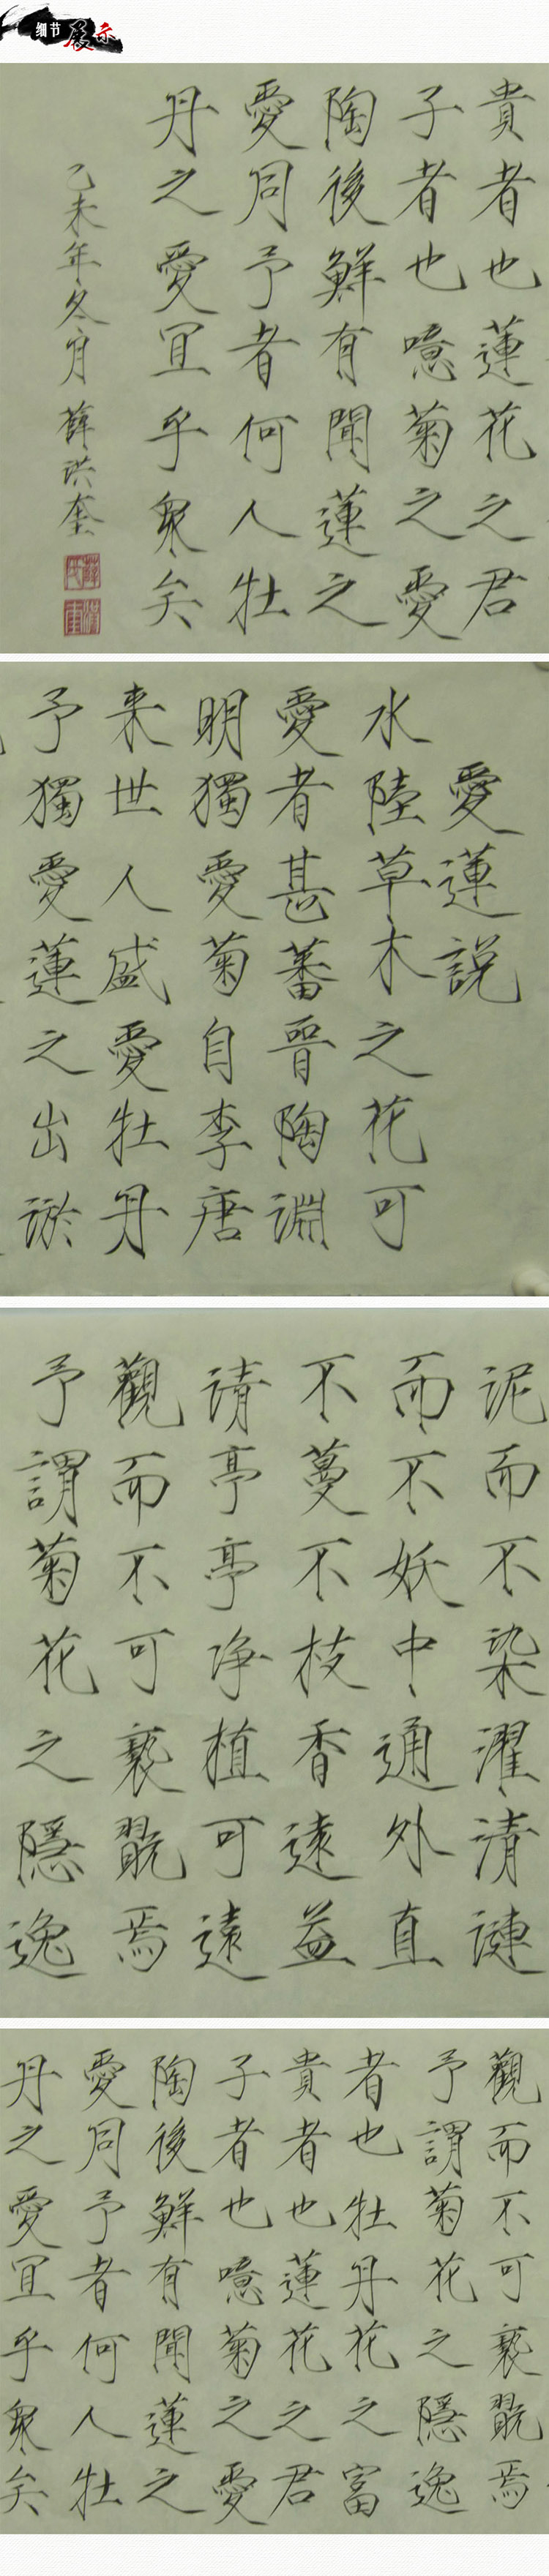 细节展示
貴者也蓮花之君
子者也噫菊之愛
陶後鮮有聞蓮之
愛同予者何人牡
丹之愛宜乎衆矣
乙未年冬月薛洪奎
愛蓮説
水陸草木之花可
愛者甚蕃晉陶淵
明獨愛菊自李唐
来世人盛愛牡丹
予獨愛蓮之出淤
泥而不染濯清漣
而不妖中通外直
不蔓不枝香遠益
請亭亭净植可遠
觀而不可褻翫焉
予謂菊花之隱逸
觀而不可褻翫焉
予謂菊花之隱逸
者也牡丹花之富
貴者也蓮花之君
子者也噫菊之愛
陶後鮮有聞蓮之
愛同予者何人牡
丹之愛宜乎衆矣